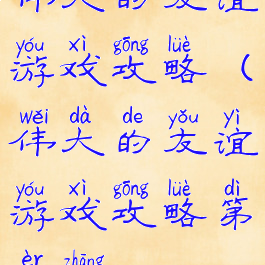 伟大的友谊
yóu xì gōng lüè
游戏攻略（
wěi dà de yǒu yì
伟大的友谊
yóu xì gōng lüè dì
游戏攻略第
èr zhāng